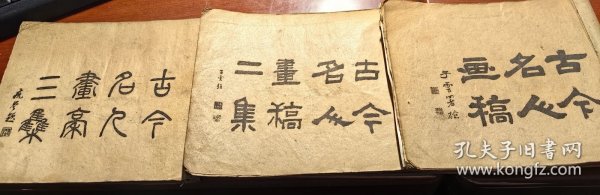 古今
名人
画稿
古今
名人
畫稿
二集
古今
名人
畫稾
三集
孔夫子旧书网
www.kongfz.com